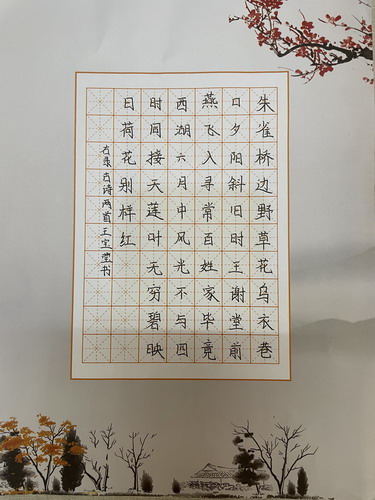 朱雀桥边野草花乌衣巷
口夕阳斜旧时王谢堂前
燕飞入寻常百姓家毕竟
西湖六月中风光不与四
时同接天莲叶无穷碧映
日荷花别样红
右录古诗两首王宝堂书